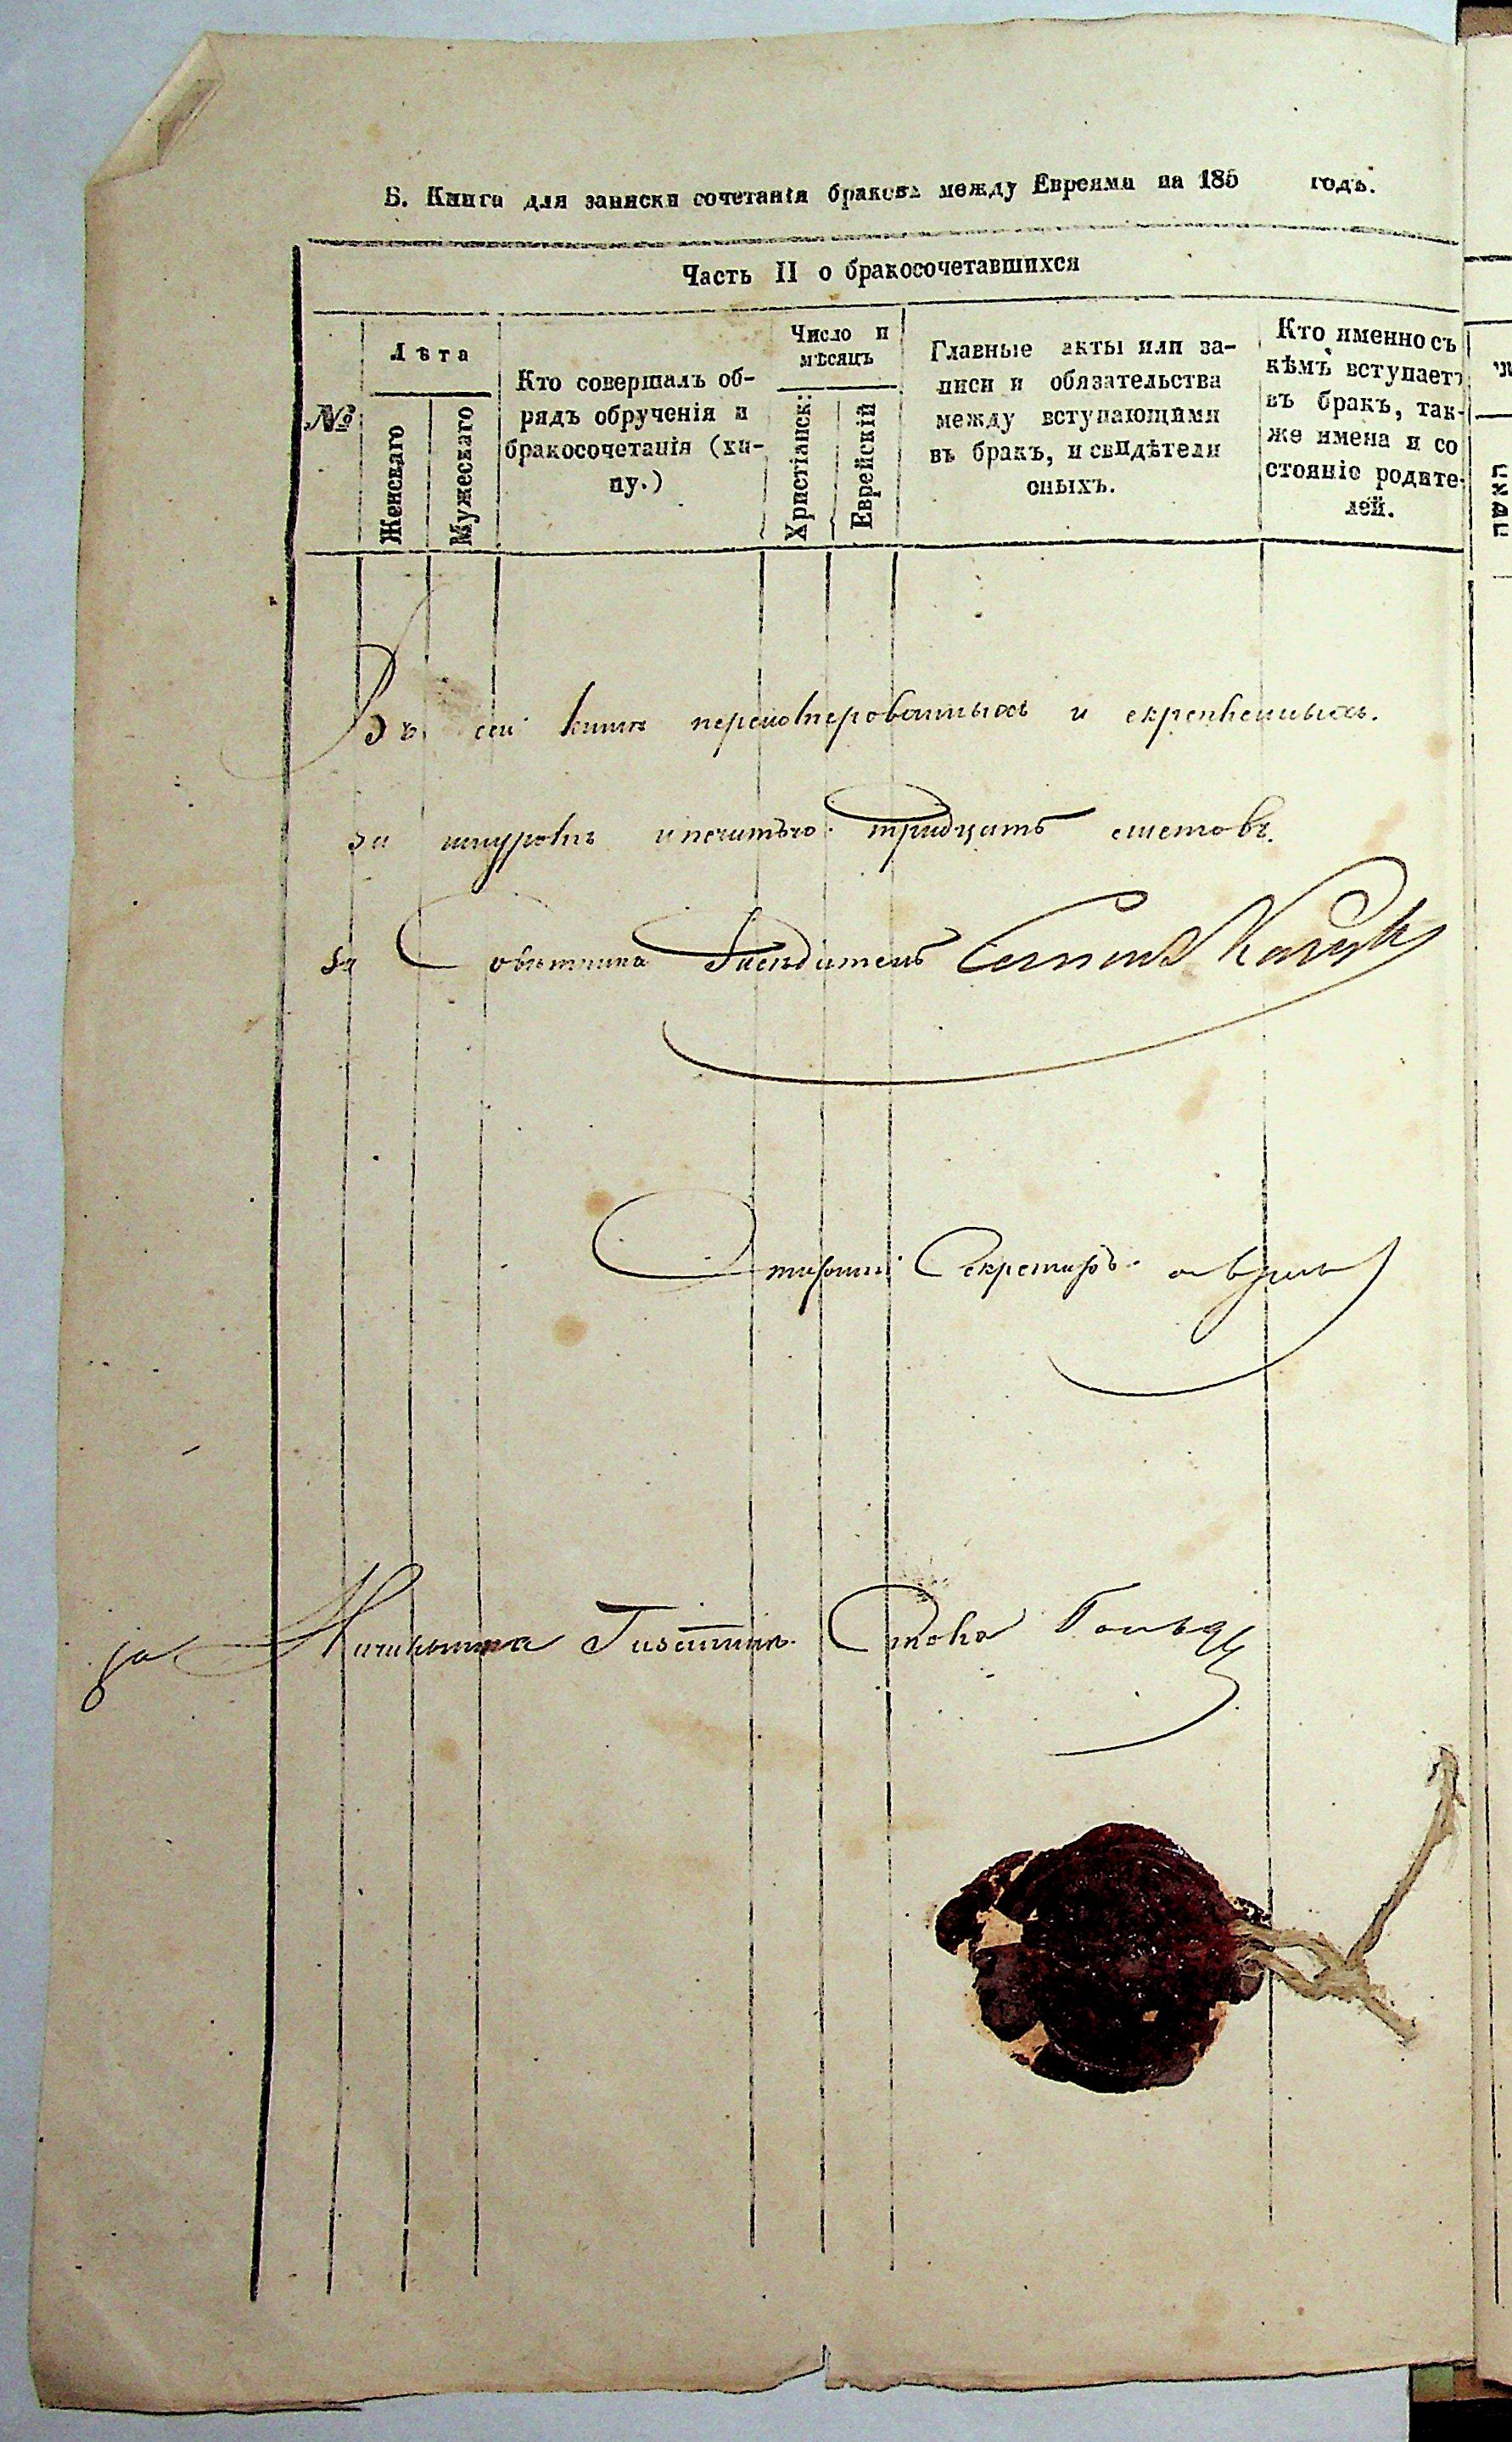 Б. Книга для записки сочетанія браковъ между Евреями на 185 годъ.
Часть II о бракосочетавшихся
№
Лѣта
Женскаго
Мужескаго
Кто совершалъ об-
рядъ обрученія и
бракосочетанія (ху-
пу.)
Число и
мѣсяцъ
Христіанск:
Еврейскій
Главные акты или за-
писи и обязательства
между вступающими
въ бракъ, и свидѣтели
оныхъ.
Кто именно съ
кѣмъ вступаетъ
въ бракъ, так-
же имена и со
стояніе родите-
лей.
Въ сей книгѣ перенумерованныхъ и скрепленныхъ
за шнуромъ и печатью тридцать листовъ.
За Совѣтника
Старшій Секретарь
за Начальника Газетнаго Стола